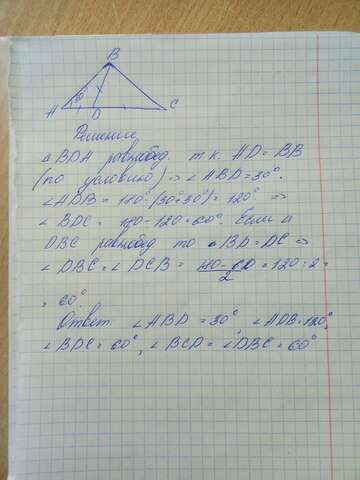 B
30°
A D C
Решение
△BDA равнобед. т.к. AD = BB
(по условию) => ∠ABD = 30°.
∠ADB = 180°-(30°+30°) = 120° =>
∠BDC = 180-120=60°. Если △
DBC равнобед то BD = DC =>
∠DBC = ∠DCB = 180-60 / 2 = 120:2=
= 60°
Ответ ∠ABD = 30°, ∠ADB=120°,
∠BDC = 60°, ∠BCD = ∠DBC = 60°